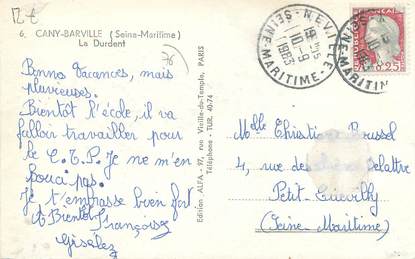 12 €
6. CANY-BARVILLE (Seine-Maritime)
La Durdent
76
Bonnes Vacances, mais
pluvieuses.
Bientôt l'école, il va
falloir travailler pour
le C.E.P. Je ne m'en
souci pas.
Je t'embrasse bien fort.
A Bientôt Françoise
Gisèle
Edition ALFA - 97, rue Vieille-du-Temple, PARIS
Téléphone - TUR. 40-74
NEVILLE
10-9
1963
SEINE-MARITIME
0,25
Melle Christine Roussel
4, rue des Delattre
Petit-Quevilly
(Seine Maritime)